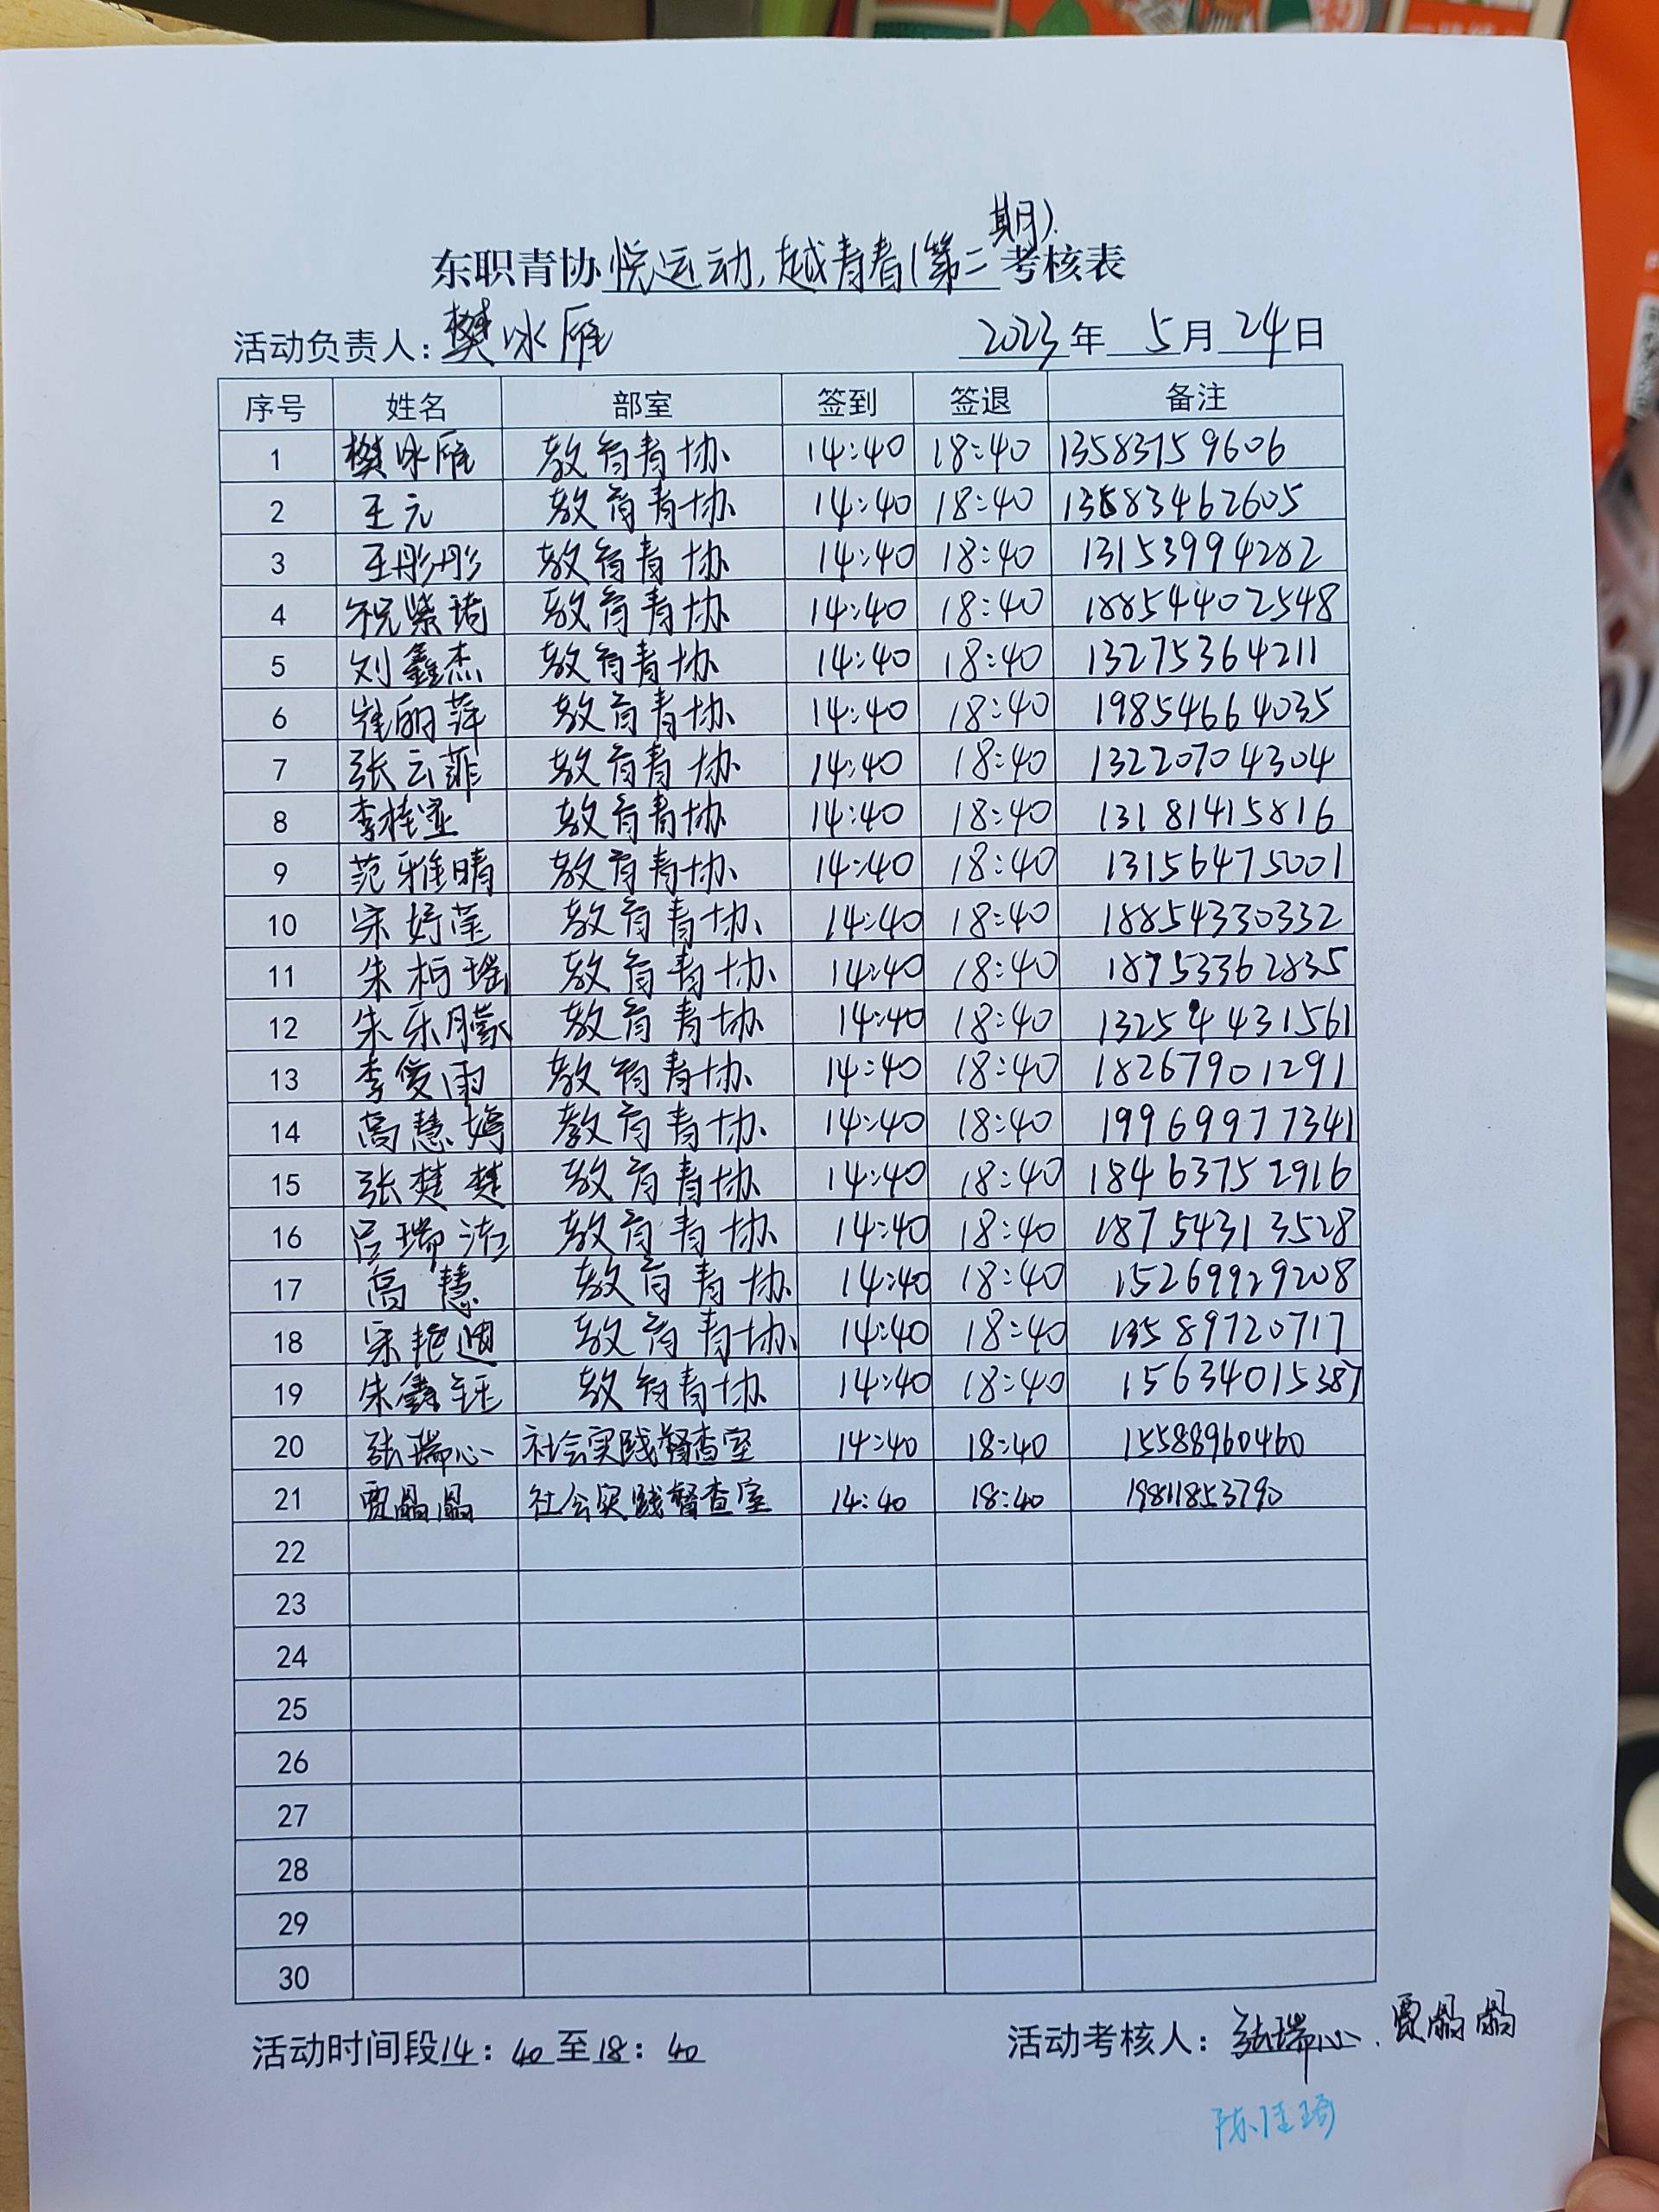 期)
东职青协悦运动,越青春(第二考核表
活动负责人:樊冰雁 2023年5月24日
序号 姓名 部室 签到 签退 备注
1 樊冰雁 教育青协 14:40 18:40 13583759606
2 王元 教育青协 14:40 18:40 13583462605
3 王彤彤 教育青协 14:40 18:40 13153994282
4 祝紫琦 教育青协 14:40 18:40 18854402548
5 刘鑫杰 教育青协 14:40 18:40 13275364211
6 崔丽萍 教育青协 14:40 18:40 19854664035
7 张云菲 教育青协 14:40 18:40 13220704304
8 李桂亚 教育青协 14:40 18:40 13181415816
9 范雅晴 教育青协 14:40 18:40 13156475001
10 宋婷莹 教育青协 14:40 18:40 18854330332
11 朱柯瑶 教育青协 14:40 18:40 18753362835
12 朱乐朦 教育青协 14:40 18:40 13254431561
13 李俊雨 教育青协 14:40 18:40 18267901291
14 高慧婷 教育青协 14:40 18:40 19969977341
15 张楚楚 教育青协 14:40 18:40 18463752916
16 吕瑞洁 教育青协 14:40 18:40 18754313528
17 高慧 教育青协 14:40 18:40 15269929208
18 宋艳迪 教育青协 14:40 18:40 13589720717
19 朱鑫钰 教育青协 14:40 18:40 15634015387
20 张瑞心 社会实践督查室 14:40 18:40 15588960460
21 贾晶晶 社会实践督查室 14:40 18:40 19811853790
22
23
24
25
26
27
28
29
30
活动时间段14:40至18:40 活动考核人:张瑞心、贾晶晶
陈佳琦